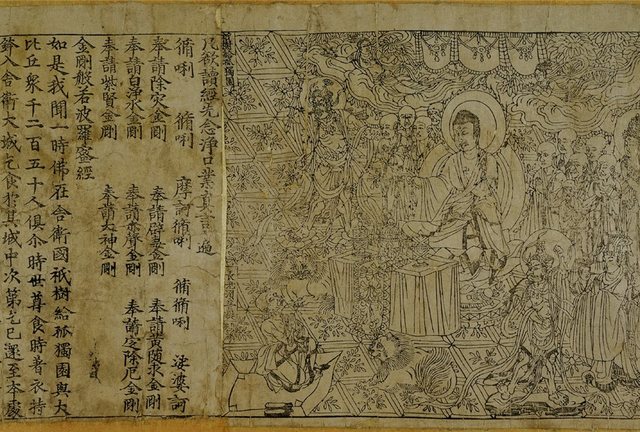 祇樹給孤獨園
凡欲讀經先念淨口業真言一遍
脩唎 脩唎 摩訶脩唎 脩脩唎 娑婆訶
奉請除灾金剛 奉請辟毒金剛 奉請黃隨求金剛
奉請白淨水金剛 奉請赤聲金剛 奉請定除厄金剛
奉請紫賢金剛 奉請大神金剛
金剛般若波羅蜜經
如是我聞一時佛在舍衛國祇樹給孤獨園與大
比丘衆千二百五十人俱尒時世尊食時著衣持
鉢入舍衛大城乞食於其城中次第乞已還至本處